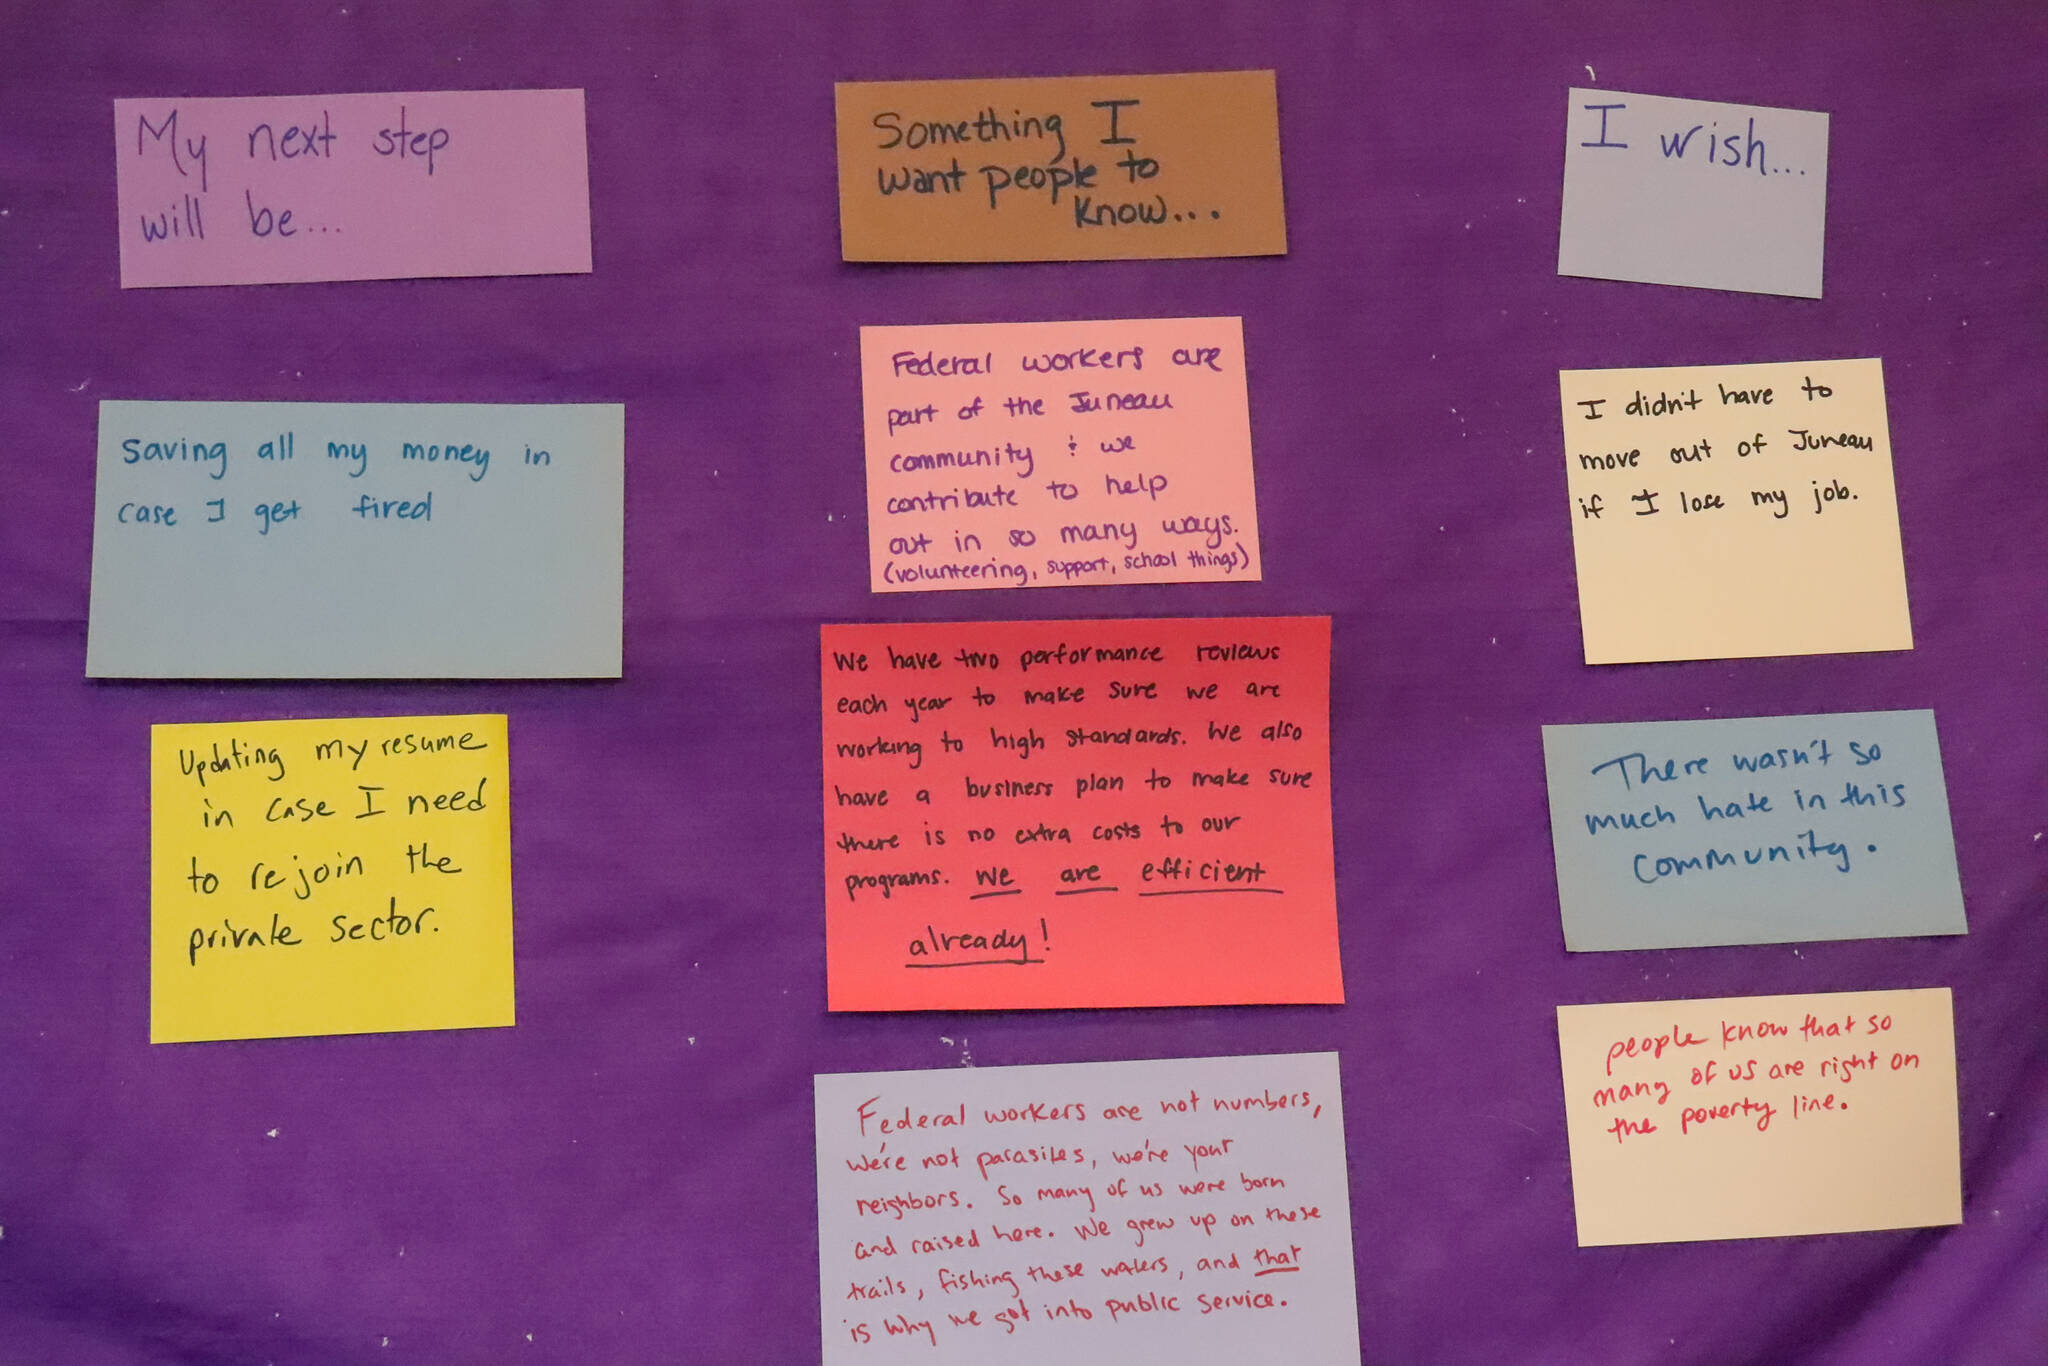 My next step
will be...
Saving all my money in
case I get fired
Updating my resume
in case I need
to rejoin the
private sector.
Something I
want people to
know...
Federal workers are
part of the Juneau
community & we
contribute to help
out in so many ways.
(volunteering, support, school things)
We have two performance reviews
each year to make sure we are
working to high standards. We also
have a business plan to make sure
there is no extra costs to our
programs. We are efficient
already!
Federal workers are not numbers,
We're not parasites, we're your
neighbors. So many of us were born
and raised here. We grew up on these
trails, fishing these waters, and that
is why we got into public service.
I wish...
I didn't have to
move out of Juneau
if I lose my job.
There wasn't so
much hate in this
community.
people know that so
many of us are right on
the poverty line.